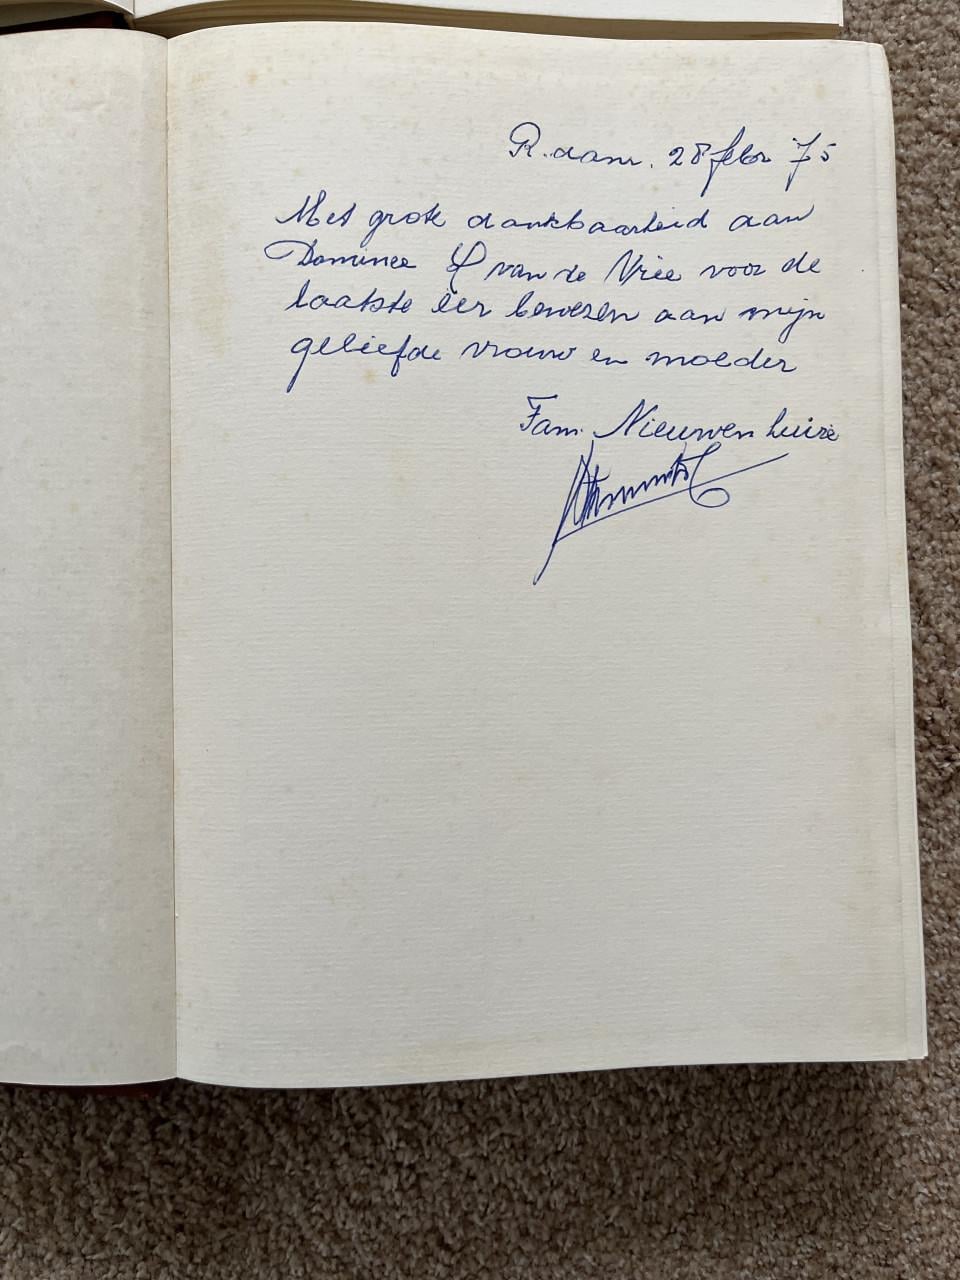 R.dam. 28 febr 75
Met grote dankbaarheid aan
Dominee van de Vrie voor de
laatste eer bewezen aan mijn
geliefde vrouw en moeder
Fam. Nieuwenhuize